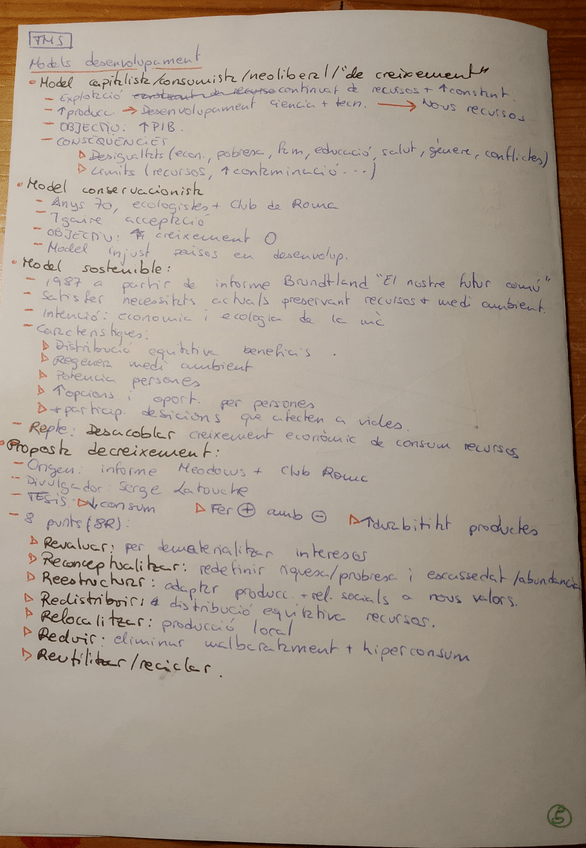 TMS
Models desenvolupament
• Model capitalista/consumista/neoliberal/"de creixement"
- Explotació constant de recurso continuat de recursos + ↑ constant.
- ↑ producc → Desenvolupament ciencia + tecn. → Nous recursos
- OBJECTIU: ↑ PIB.
- CONSEQÜENCIES
▷ Desigualtats (econ., pobresa, fam, educació, salut, gènere, conflictes)
▷ Límits (recursos, ↑ contaminació...)
• Model conservacionista
- Anys 70, ecologistes + Club de Roma
- 7 gaire acceptació
- OBJECTIU: creixement 0
- Model injust països en desenvolup.
• Model sostenible:
- 1987 a partir de informe Brundtland "El nostre futur comú"
- Satisfer necessitats actuals preservant recursos + medi ambient.
- Intenció: economia i ecologia de la mà
- Característiques:
▷ Distribució equitativa beneficis.
▷ Regenera medi ambient
▷ Potencia persones
▷ ↑ opcions i oport. per persones
▷ + particip. desicions que afecten a vides.
- Repte: Desacoblar creixement econòmic de consum recursos
• Proposta decreixement:
- Origen: informe Meadows + Club Roma
- Divulgador: Serge Latouche
- TESIS ▷ ↓ consum ▷ Fer ⊕ amb ⊖ ▷ ↑ durabilitat productes
- 8 punts (8R):
▷ Revaluar: per desmaterialitzar interesos
▷ Reconceptualitzar: redefinir riquesa/probresa i escassedat/abundancia
▷ Reestructurar: adaptar producc. + rel. socials a nous valors.
▷ Redistribuir: distribució equitativa recursos.
▷ Relocalitzar: producció local
▷ Reduir: eliminar malbaratament + hiperconsum
▷ Reutilitzar/reciclar.
5